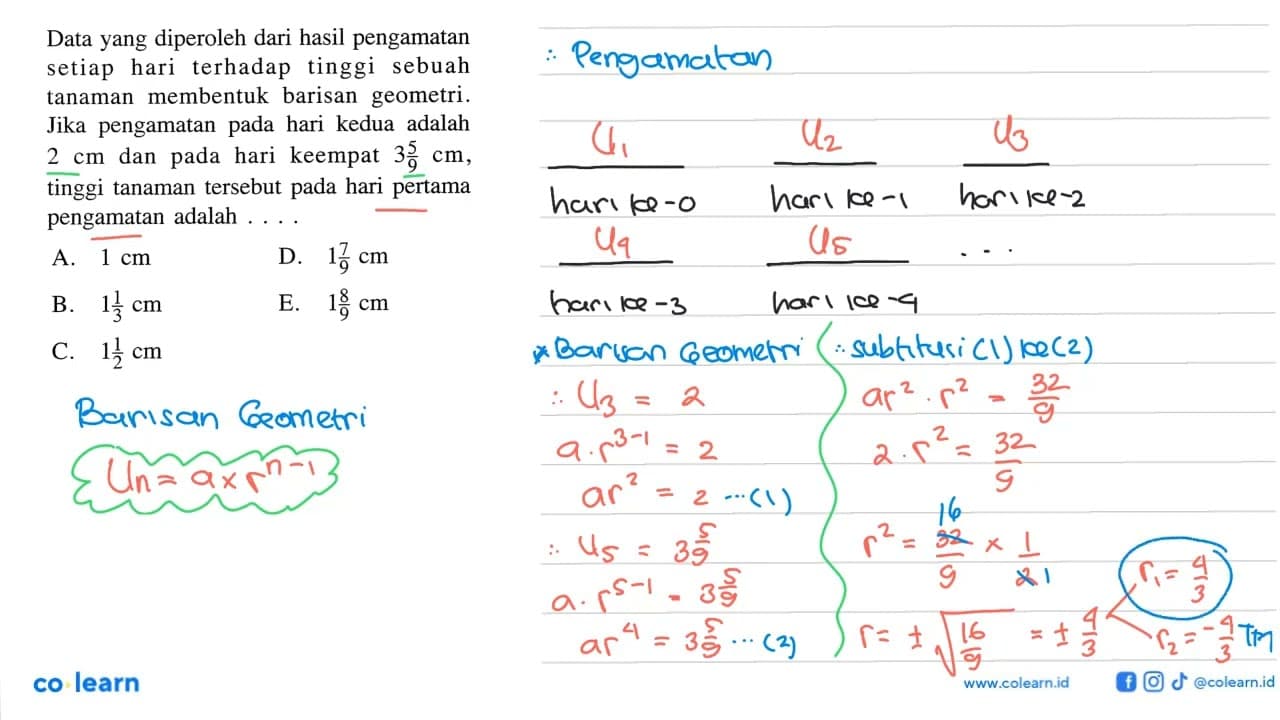 Data yang diperoleh dari hasil pengamatan
setiap hari terhadap tinggi sebuah
tanaman membentuk barisan geometri.
Jika pengamatan pada hari kedua adalah
2 cm dan pada hari keempat 3 5/9 cm,
tinggi tanaman tersebut pada hari pertama
pengamatan adalah . . . .
A. 1 cm
B. 1 1/3 cm
C. 1 1/2 cm
D. 1 7/9 cm
E. 1 8/9 cm
Barisan Geometri
Un = a × r^(n-1)
∴ Pengamatan
U1 U2 U3
hari ke-0 hari ke-1 hari ke-2
U4 U5 ...
hari ke-3 hari ke-4
* Barisan Geometri
∴ U3 = 2
a . r^(3-1) = 2
ar² = 2 ...(1)
∴ U5 = 3 5/9
a . r^(5-1) = 3 5/9
ar⁴ = 3 5/9 ...(2)
∴ subtitusi (1) ke (2)
ar² . r² = 32/9
2 . r² = 32/9
16
r² = 32/9 × 1/2 1
r = ± √(16/9) = ± 4/3
r1 = 4/3
r2 = -4/3 TM
co learn
www.colearn.id
@colearn.id